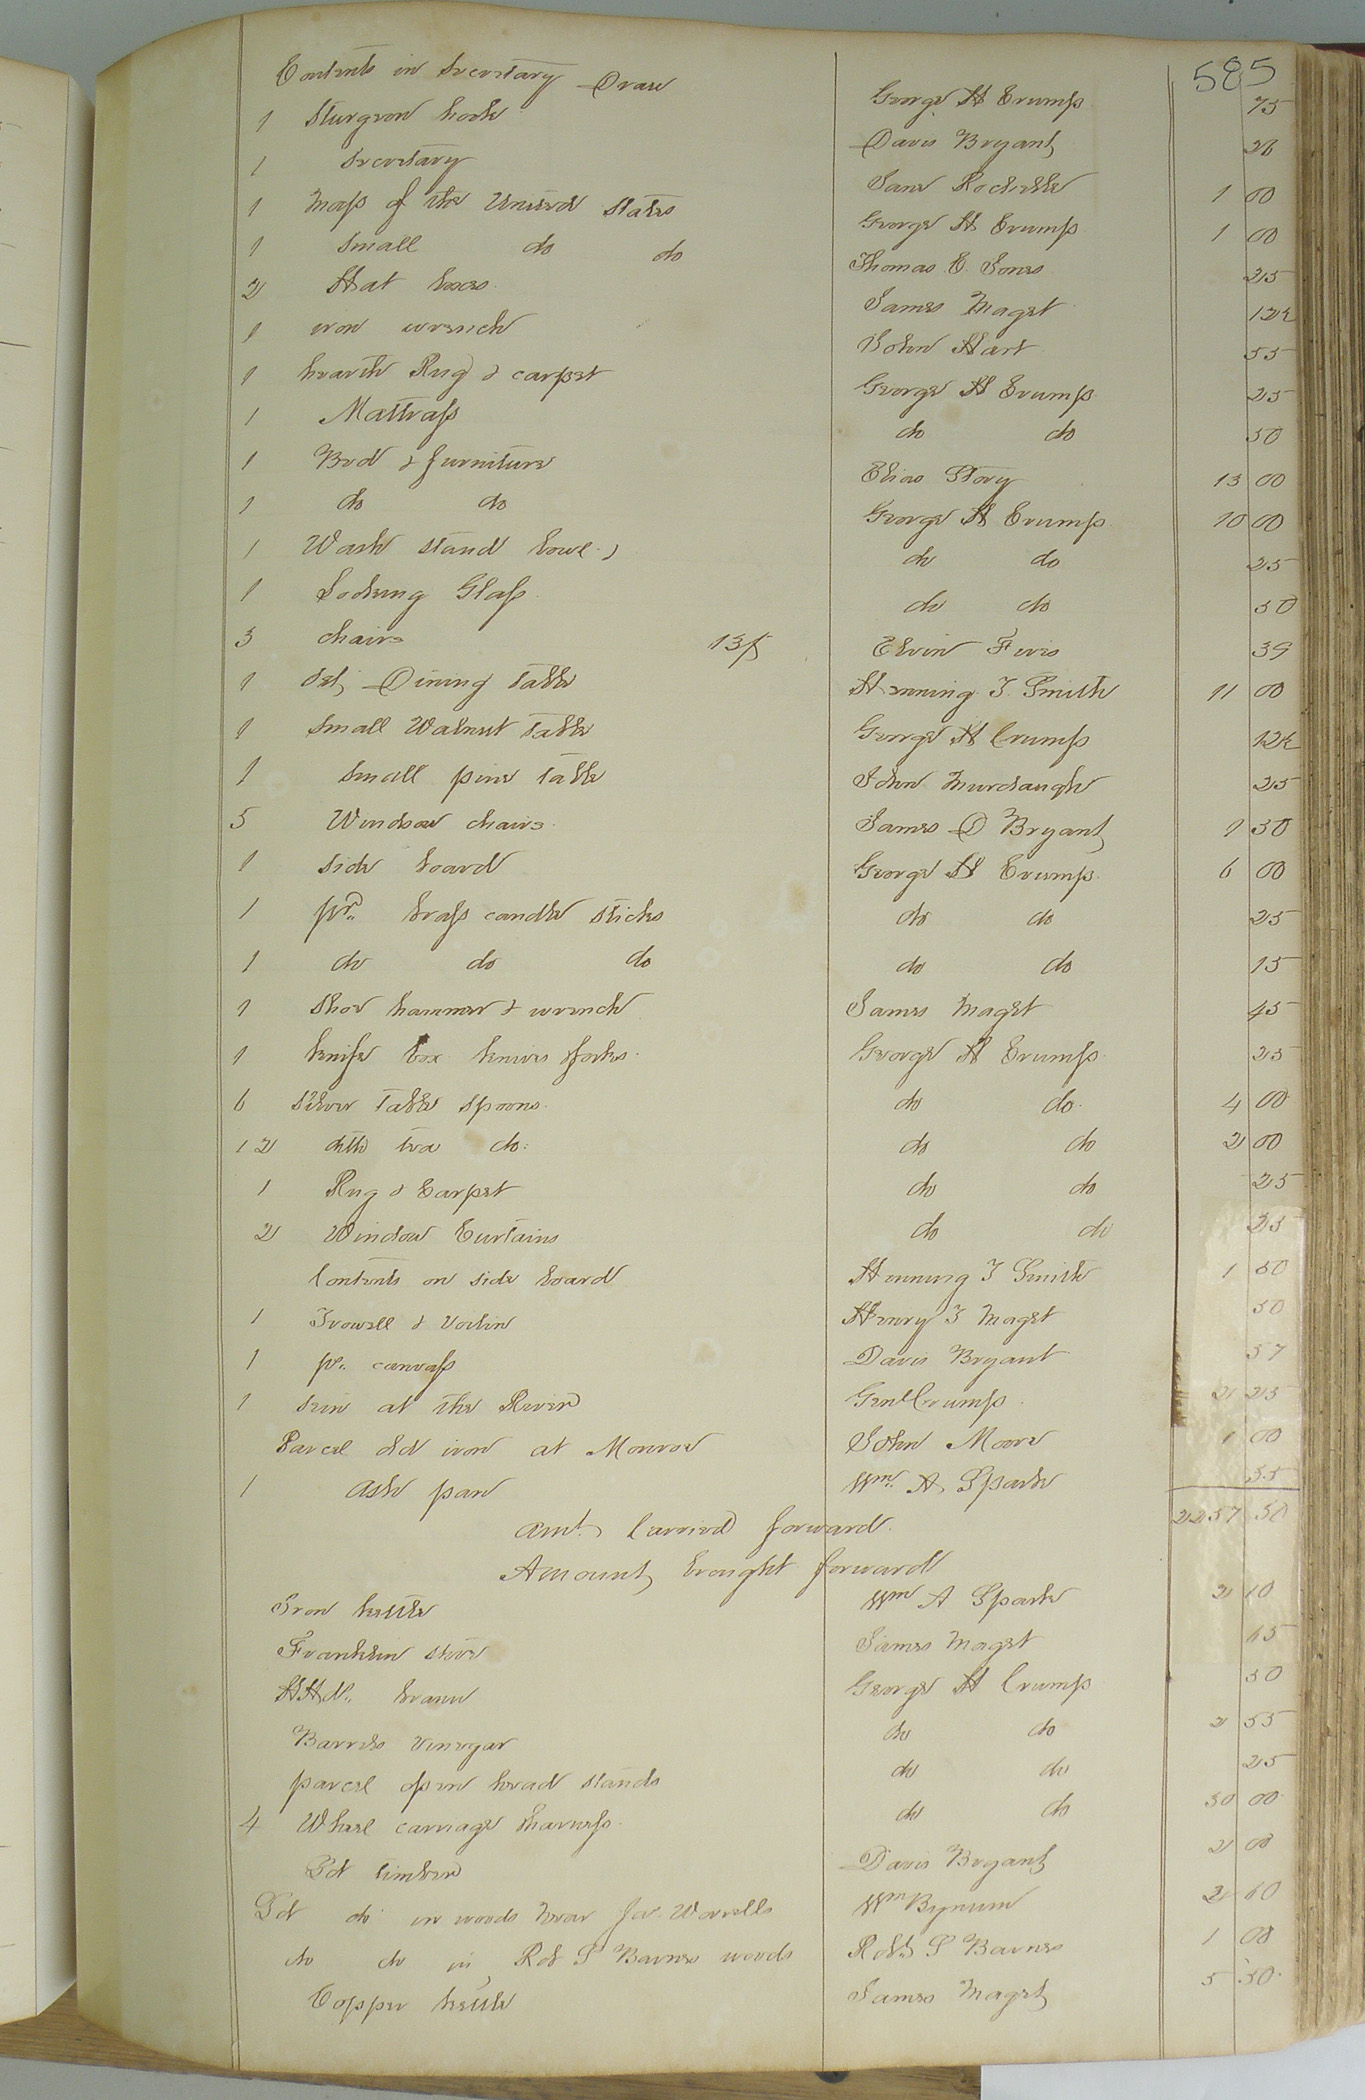 585
Contents in Secretary Draw George H Crump 75
1 Sturgeon hook Davis Bryant 26
1 Secretary Jane Rochelle 1 00
1 Map of the United States George H Crump 1 00
1 Small do do Thomas E. Jones 25
2 Hat boxes James Maget 12½
1 iron wrench John Hart 55
1 hearth Rug & carpet George H Crump 25
1 Mattrass do do 50
1 Bed & furniture Elias Story 13 00
1 do do George H Crump 10 00
1 Wash stand bowl do do 25
1 Looking Glass do do 50
3 chairs 13¢ Elvin 39
1 set Dining table Henning T. Smith 11 00
1 Small Walnut table George H Crump 12½
1 Small pine table John Murdaugh 25
5 Windsor chairs James D Bryant 1 30
1 Side board George H Crump 6 00
1 pr. brass candle sticks do do 25
1 do do do do do 15
1 Shoe hammer & wrench James Maget 45
1 knife box knives & forks George H Crump 25
6 Silver table spoons do do 4 00
12 ditto tea do do do 2 00
1 Rug & Carpet do do 25
2 Window Curtains do do 25
Contents on side board Henning T Smith 1 50
1 Trowell & Henry T Maget 50
1 pr. canvass Davis Bryant 57
1 sein at the River Genl Crump 2 25
Parcel old iron at Monroe John Moore 1 00
1 Ash pan Wm. A Spark 55
Amt. Carried forward 2257 50
Amount brought forward
Iron kettle Wm A Spark 2 10
Franklin stove James Maget 65
HHd. George H Crump 50
Barrels vinegar do do 2 55
parcel open head stands do do 25
4 Wheel carriage & harness do do 50 00
Lot timber Davis Bryant 2 00
Lot do in woods near Jas. Worrells Wm Bynum 2 60
do do in Rob S Barnes woods Robt S Barnes 1 00
Copper kettle James Maget 5 50